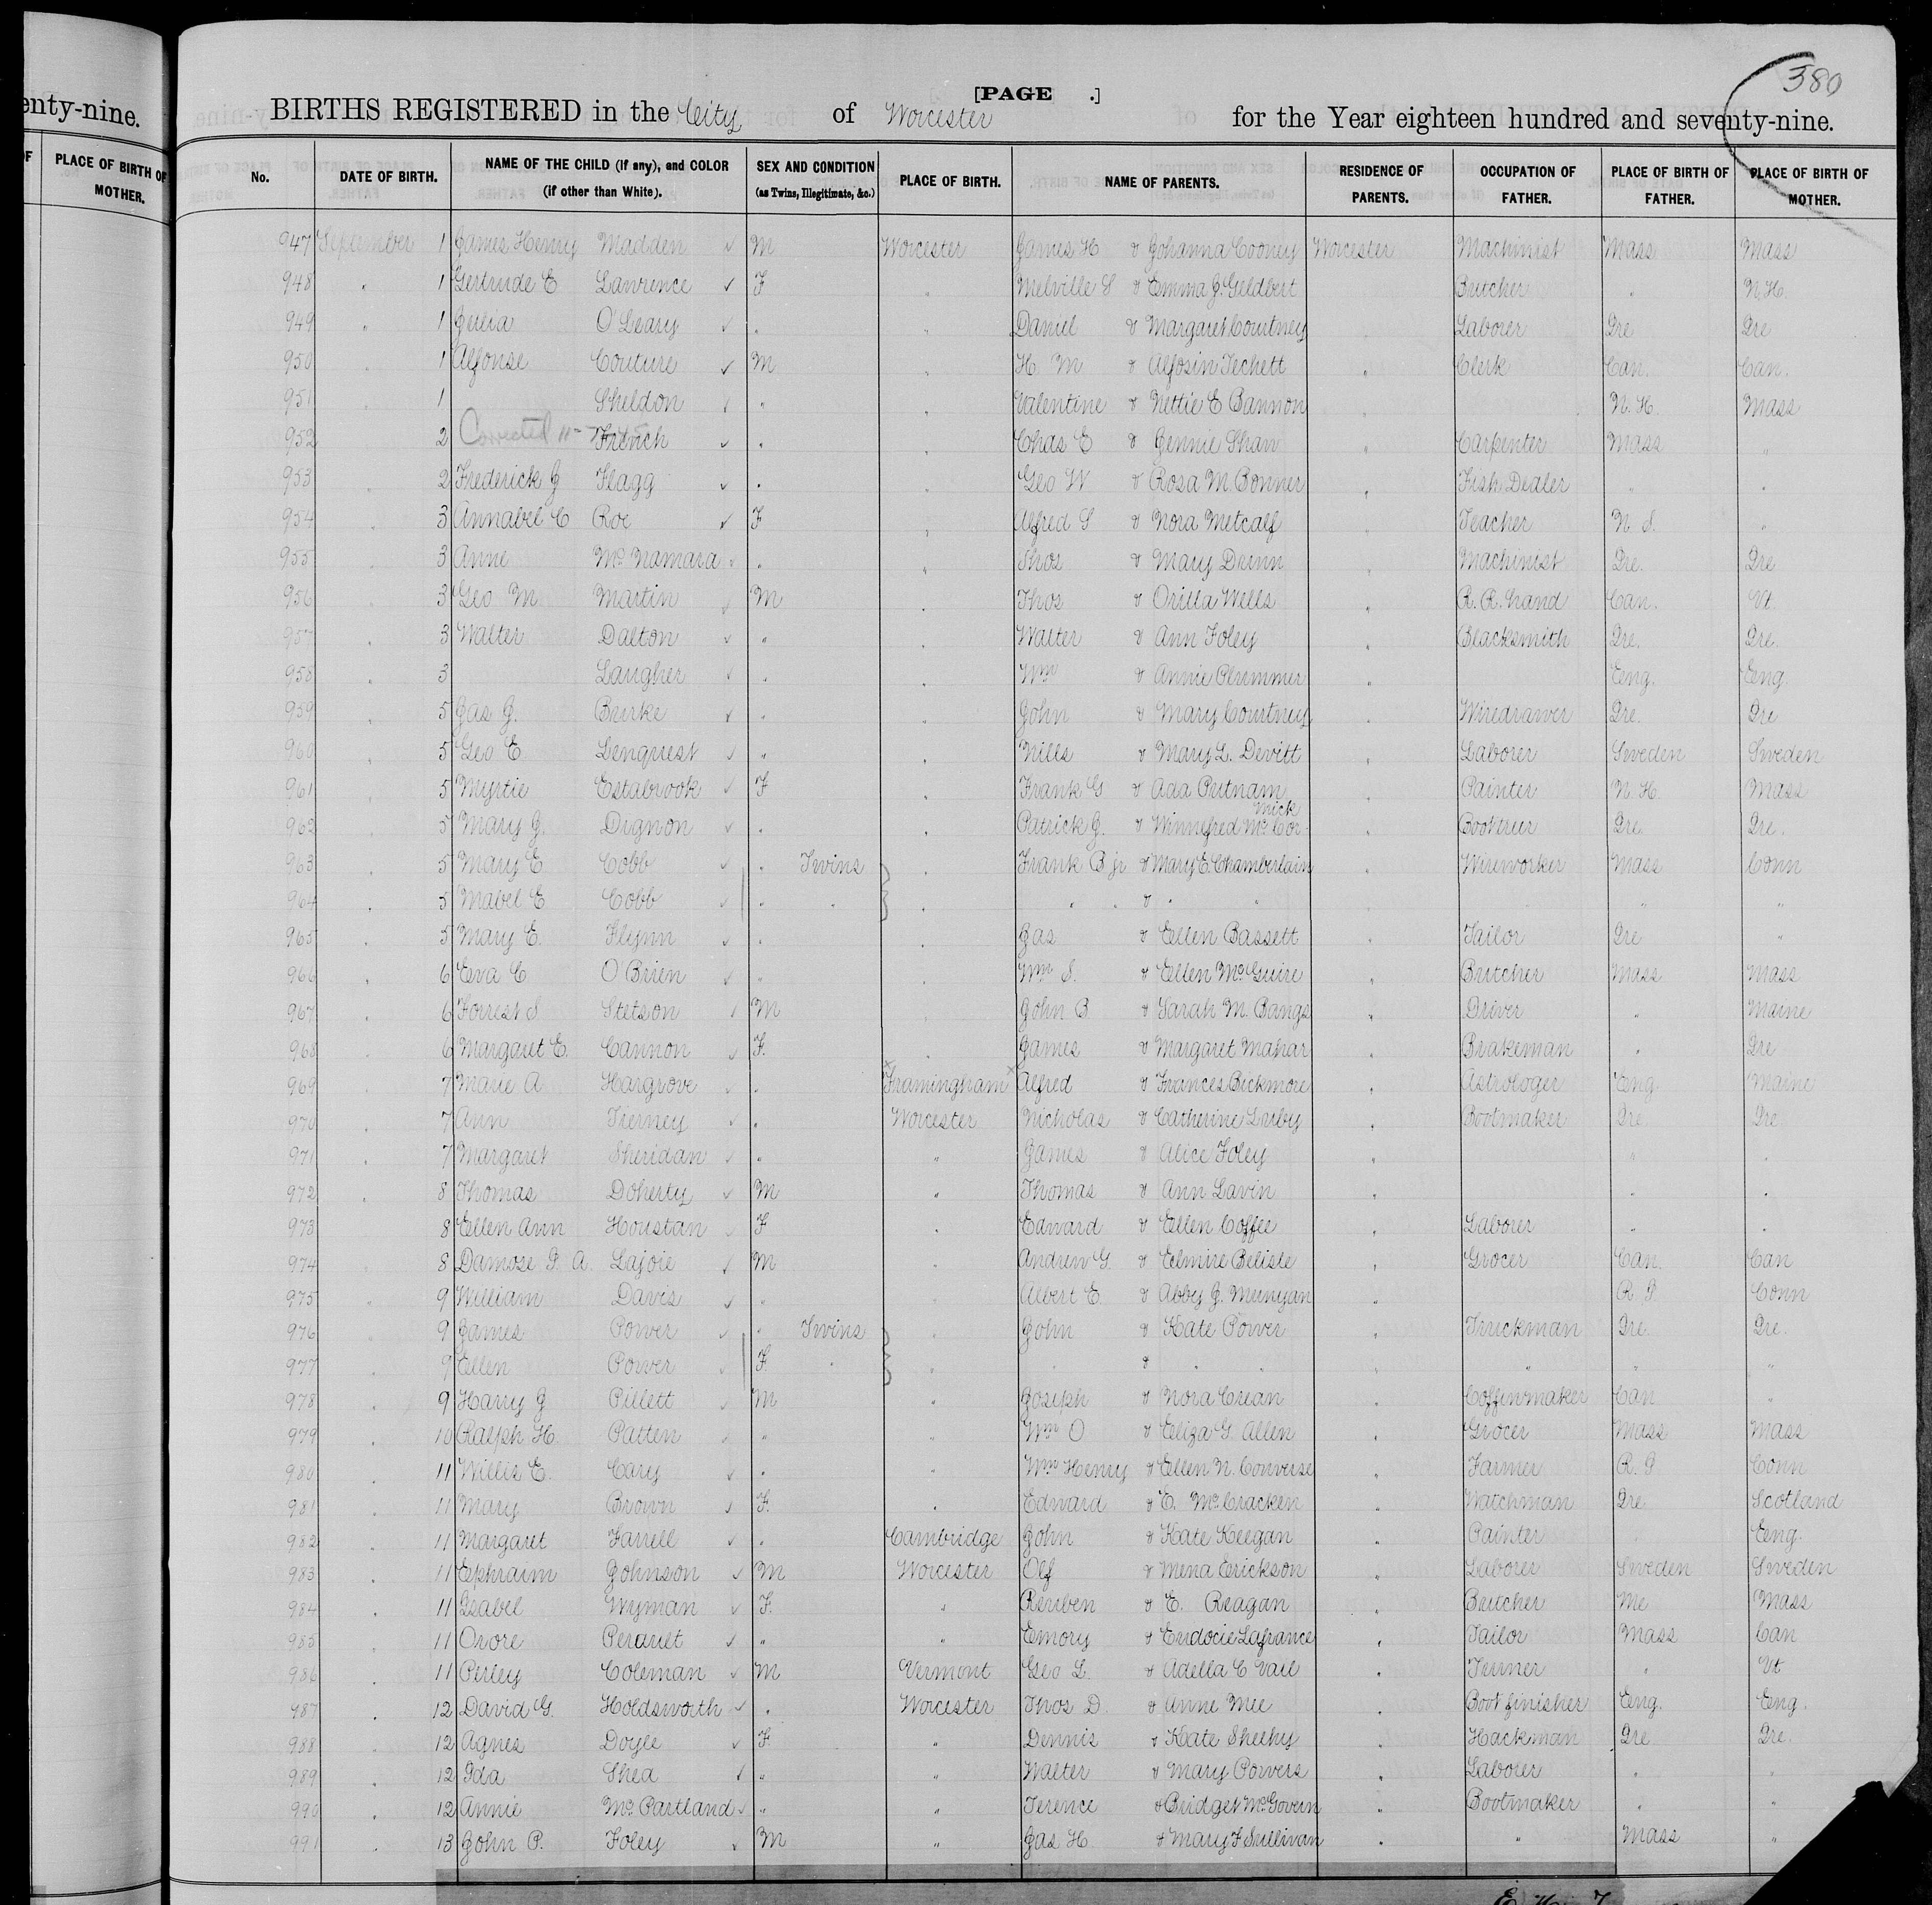 enty-nine.
PLACE OF BIRTH OF
MOTHER.
380
[PAGE .]
BIRTHS REGISTERED in the City of Worcester for the Year eighteen hundred and seventy-nine.
No. DATE OF BIRTH. NAME OF THE CHILD (if any), and COLOR (if other than White). SEX AND CONDITION (as Twins, Illegitimate, &c.) PLACE OF BIRTH. NAME OF PARENTS. RESIDENCE OF PARENTS. OCCUPATION OF FATHER. PLACE OF BIRTH OF FATHER. PLACE OF BIRTH OF MOTHER.
947 September 1 James Henry Madden ✓ M Worcester James H & Johanna Cooney Worcester Machinist Mass Mass
948 " 1 Gertrude E Lawrence ✓ F " Melville S & Emma J. Geldbert Butcher " N.H.
949 " 1 Julia O'Leary ✓ " " Daniel & Margaret Courtney " Laborer Ire Ire
950 " 1 Alfonse Couture ✓ M " H. M & Alfosin Techett " Clerk Can. Can.
951 " 1 Sheldon ✓ " " Valentine & Nettie E Bannon " N. H. Mass
952 2 Corrected French ✓ " " Chas E & Jennie Shaw " Carpenter Mass "
953 " 2 Frederick J Flagg ✓ " " Geo W & Rosa M Bonner " Fish Dealer " "
954 " 3 Annabel C Roe ✓ F " Alfred S & Nora Metcalf " Teacher "
955 " 3 Anne McNamara ✓ " " Thos & Mary Dunn " Machinist Ire. Ire
956 " 3 Geo M Martin ✓ M " Thos & Orilla Wells " R. R. hand Can. Vt.
957 " 3 Walter Dalton ✓ " " Walter & Ann Foley " Blacksmith Ire. Ire.
958 " 3 Laugher ✓ " " Wm & Annie Plummer " Eng. Eng.
959 " 5 Jas J. Burke ✓ " " John & Mary Courtney " Wiredrawer Ire. Ire
960 " 5 Geo E Lenquest ✓ " " Nills & Mary L. Devitt " Laborer Sweden Sweden
961 " 5 Myrtie Estabrook ✓ F " Frank G & Ada Putnam " Painter N. H. Mass
962 " 5 Mary J. Dignon ✓ " " Patrick J. & Winnefred McCormick " Ire. Ire.
963 " 5 Mary E Cobb ✓ " Twins " Frank B jr & Mary E. Chamberlain " Wireworker Mass Conn
964 " 5 Mabel E Cobb ✓ " " " " & " " " "
965 " 5 Mary E. Flynn ✓ " " Jas & Ellen Bassett " Tailor Ire "
966 " 6 Eva C O'Brien ✓ " " Wm S. & Ellen McGuire " Butcher Mass Mass
967 " 6 Forrest S Stetson ✓ M " John B & Sarah M. Bangs " Driver " Maine
968 " 6 Margaret E. Cannon ✓ F. " James & Margaret Mahar " Brakeman " Ire
969 " 7 Marie A Hargrove ✓ " Framingham Alfred & Frances Bickmore " Astrologer Eng Maine
970 " 7 Ann Tierney ✓ " Worcester Nicholas & Catherine Luby " Bootmaker Ire Ire
971 " 7 Margaret Sheridan ✓ " " James & Alice Foley " " "
972 " 8 Thomas Doherty ✓ M " Thomas & Ann Lavin " " "
973 8 Ellen Ann Houstan ✓ F " Edward & Ellen Coffee " Laborer " "
974 " 8 Damose A. Lajoie ✓ M " Andrew G. & Elmire Belisle " Grocer Can. Can
975 " 9 William Davis ✓ " " Albert E. & Abby J. Munyan " R I Conn
976 " 9 James Power ✓ " Twins " John & Kate Power " Truckman Ire. Ire.
977 " 9 Ellen Power ✓ F. " " " & " " " " " "
978 " 9 Harry J Pillett ✓ M " Joseph & Nora Crean " Coffinmaker Can "
979 " 10 Ralph H. Patten ✓ " " Wm O & Eliza G. Allen " Grocer Mass Mass
980 " 11 Willis E. Cary ✓ " " Wm Henry & Ellen N. Converse " Farmer R. I Conn
981 " 11 Mary Brown ✓ F. " Edward & E. McCracken " Watchman Ire Scotland
982 " 11 Margaret Farrell ✓ " Cambridge John & Kate Keegan " Painter " Eng.
983 " 11 Ephraim Johnson ✓ M Worcester Olf & Mena Erickson " Laborer Sweden Sweden
984 " 11 Isabel Wyman ✓ F. " Reuben & E. Reagan " Butcher Me Mass
985 " 11 Orore Perault ✓ " " Emory & Eudocie Lafrance " Tailor Mass Can
986 " 11 Perley Coleman ✓ M Vermont Geo L. & Adella C Vail " Turner " Vt
987 " 12 David G. Holdsworth ✓ " Worcester Thos D. & Anne Mee " Boot finisher Eng. Eng.
988 " 12 Agnes Doyle ✓ F. " Dennis & Kate Sheehy " Hackman Ire Ire.
989 " 12 Ida Shea ✓ " " Walter & Mary Powers " Laborer " "
990 " 12 Annie McPartland ✓ " " Terence & Bridget McGovern " Bootmaker " "
991 " 13 John P. Foley ✓ M " Jas H. & Mary F Sullivan " " Mass "